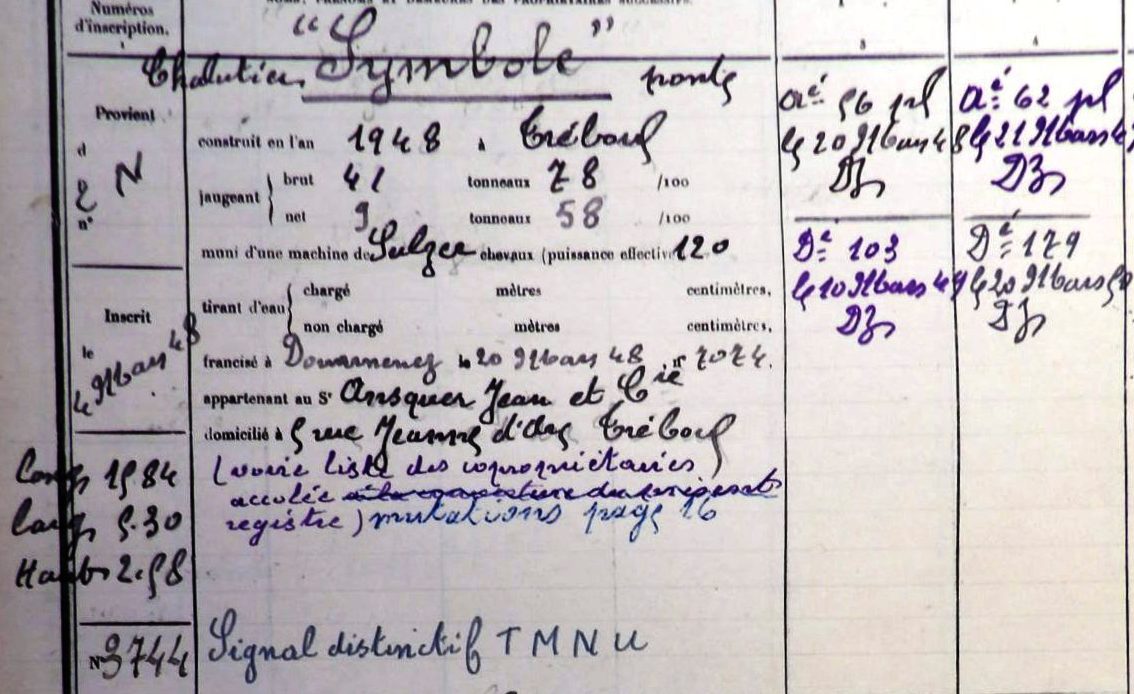 Numéros
d'inscription.
"Symbole"
Chalutier ponté
Provient
d
N
n°
construit en l'an 1948 à Tréboul
jaugeant brut 41 tonneaux 78 /100
net 9 tonneaux 58 /100
muni d'une machine de Sulzer chevaux (puissance effective 120
tirant d'eau chargé mètres centimètres,
non chargé mètres centimètres,
francisé à Douarnenez le 20 Mars 48 n° 7074.
appartenant au Sr Ansquer Jean et Cie
domicilié à 5 rue Jeanne d'Arc Tréboul
(voir liste des copropriétaires)
accolée
registre) mutations page 16
Inscrit
le
4 Mars 48
Long 15.84
Larg 5.30
Haut 2.58
N° 3744
Signal distinctif T M N U
3
Ré 56 pl
le 20 Mars 48
DZ
Dé 103
le 10 Mars 49
DZ
4
Ré 62 pl
le 21 Mars
DZ
Dé 179
le 20 Mars 50
DZ